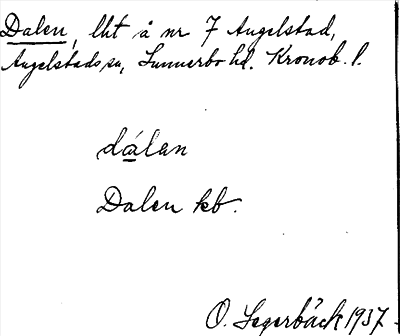 Dalen, lht å nr 7 Angelstad,
Angelstads sn, Sunnerbo hd. Kronob. l.
dálan
Dalen kb.
O. Segerbäck 1937.